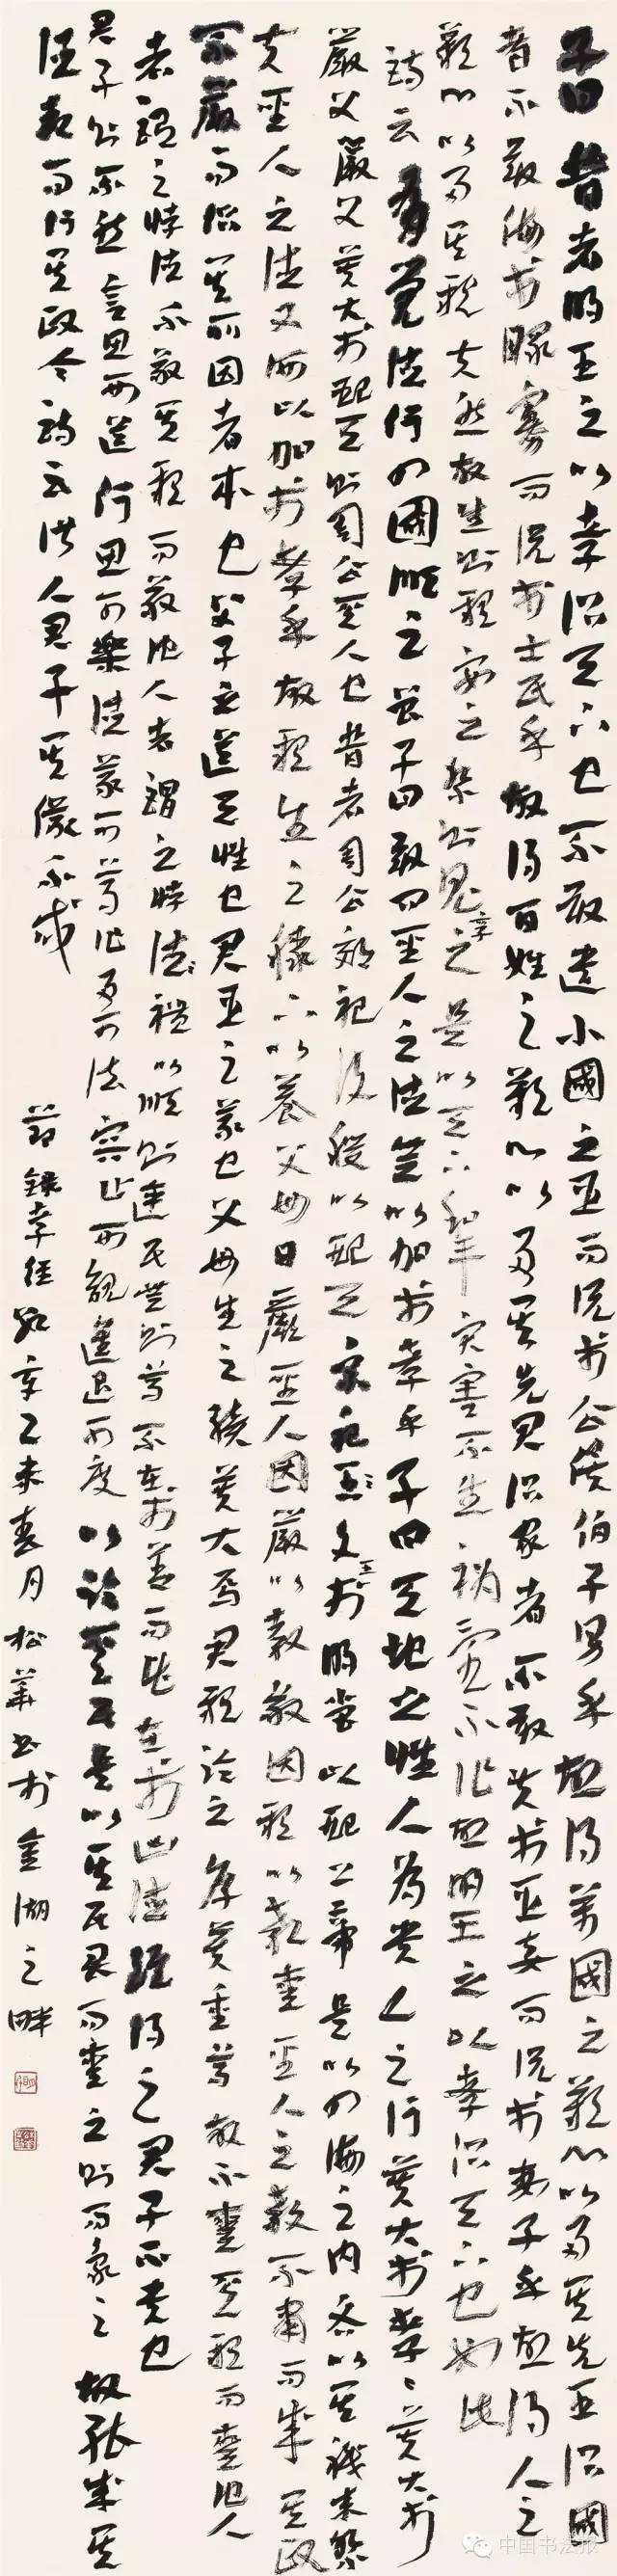 子曰昔者明王之以孝治天下也不敢遺小國之臣而況於公侯伯子男乎故得萬國之歡心以事其先王治國
者不敢侮於鰥寡而況於士民乎故得百姓之歡心以事其先君治家者不敢失於臣妾而況於妻子乎故得人之
歡心以事其親夫然故生則親安之祭則鬼享之是以天下和平灾害不生禍亂不作故明王之以孝治天下也如此
詩云有覺德行四國順之曾子曰敢問聖人之德无以加於孝乎子曰天地之性人為貴人之行莫大於孝孝莫大於
嚴父嚴父莫大於配天則周公其人也昔者周公郊祀后稷以配天宗祀文王於明堂以配上帝是以四海之内各以其職来祭
夫聖人之德又何以加於孝乎故親生之膝下以養父母日嚴聖人因嚴以教敬因親以教愛聖人之教不肅而成其政
不嚴而治其所因者本也父子之道天性也君臣之義也父母生之續莫大焉君親臨之厚莫重焉故不愛其親而愛他人
者謂之悖德不敬其親而敬他人者謂之悖禮以順則逆民無則焉不在於善而皆在於凶德雖得之君子不貴也
君子則不然言思可道行思可樂德義可尊作事可法容止可觀進退可度以臨其民是以其民畏而愛之則而象之故能成其
德教而行其政令詩云淑人君子其儀不忒
節錄孝經數章乙未春月松華書於金湖之畔
中国书法报